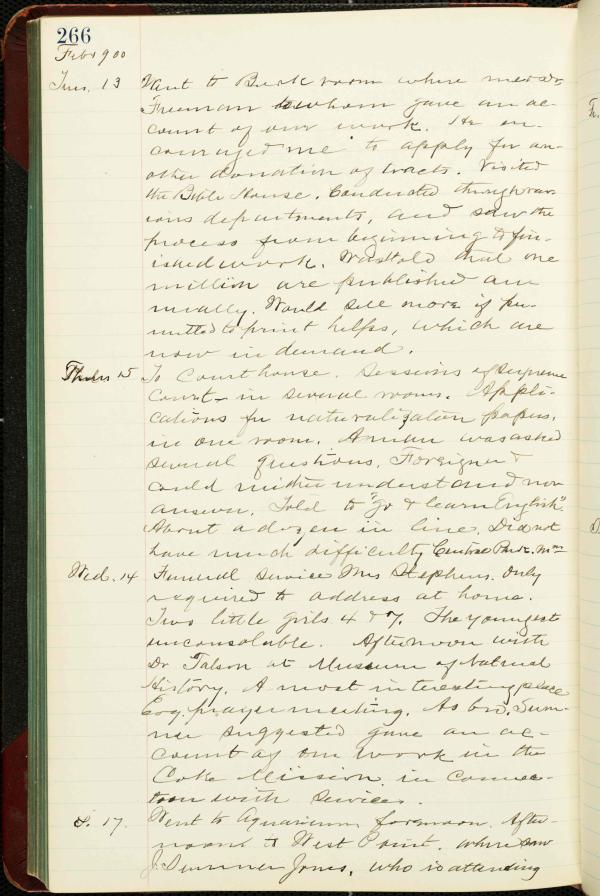 266
Feb 1900
Tues. 13 Went to Book room where met Dr
Freeman to whom gave an ac-
count of our work. He en-
couraged me to apply for an-
other donation of tracts. Visited
the Bible House. Conducted through var-
ious departments, and saw the
process from beginning to fin-
ished work. Was told that one
million are published an-
nually. Would sell more if per-
mitted to print helps, which are
now in demand.
Thurs 15 To Court house. Sessions of Supreme
Court in several rooms. Appli-
cations for naturalization papers,
in one room. A man was asked
several questions. Foreigner &
could neither understand nor
answer. Told to "go & learn English".
About a dozen in line. Did not
have much difficulty Central Park.
Wed. 14 Funeral service Mrs Stephens. Only
required to address at home.
Two little girls 4 & 7. The youngest
unconsolable. Afternoon with
Dr at Museum of Natural
History. A most interesting place
Evg. prayer meeting. As bro. Sum-
ner suggested gave an ac-
count of our work in the
Coke Mission in connec-
tion with services.
S. 17. Went to Aquarium forenoon. After-
noon to West Point. where saw
J. Sumner Jones, who is attending